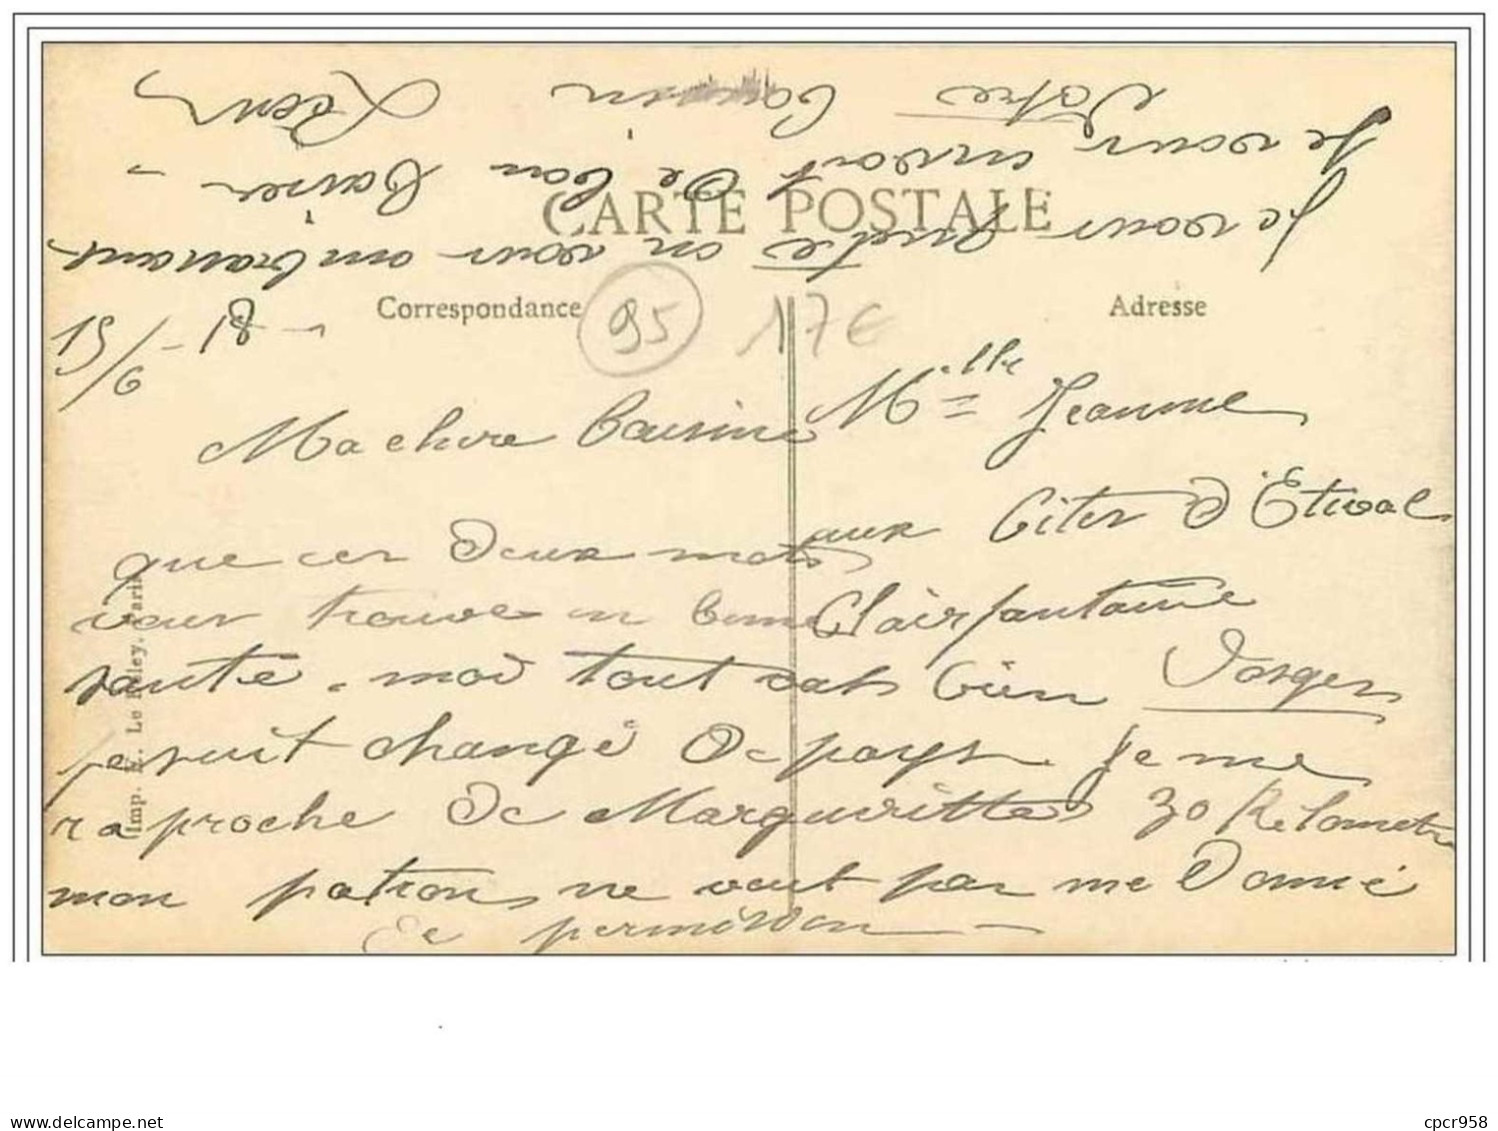 CARTE POSTALE
Correspondance
Adresse
95
17€
15/6 - 18 -
Ma chere Cousine
que ces deux mots
vous trouve en bonne
santé. moi tout vat bien
je suit changé de pays. Je me
raproche de Marguerittes 30 Kilometre
mon patron ne veut pas me donné
de permision -
Melle Jeanne
aux Cites d'Etival
Clairfontaine
Vosges
Je vous quite en vous ombrassant
Je vous envoit de bon baiser -
Votre Cousin Léon
Imp. E. Le Deley, Paris
cpcr958